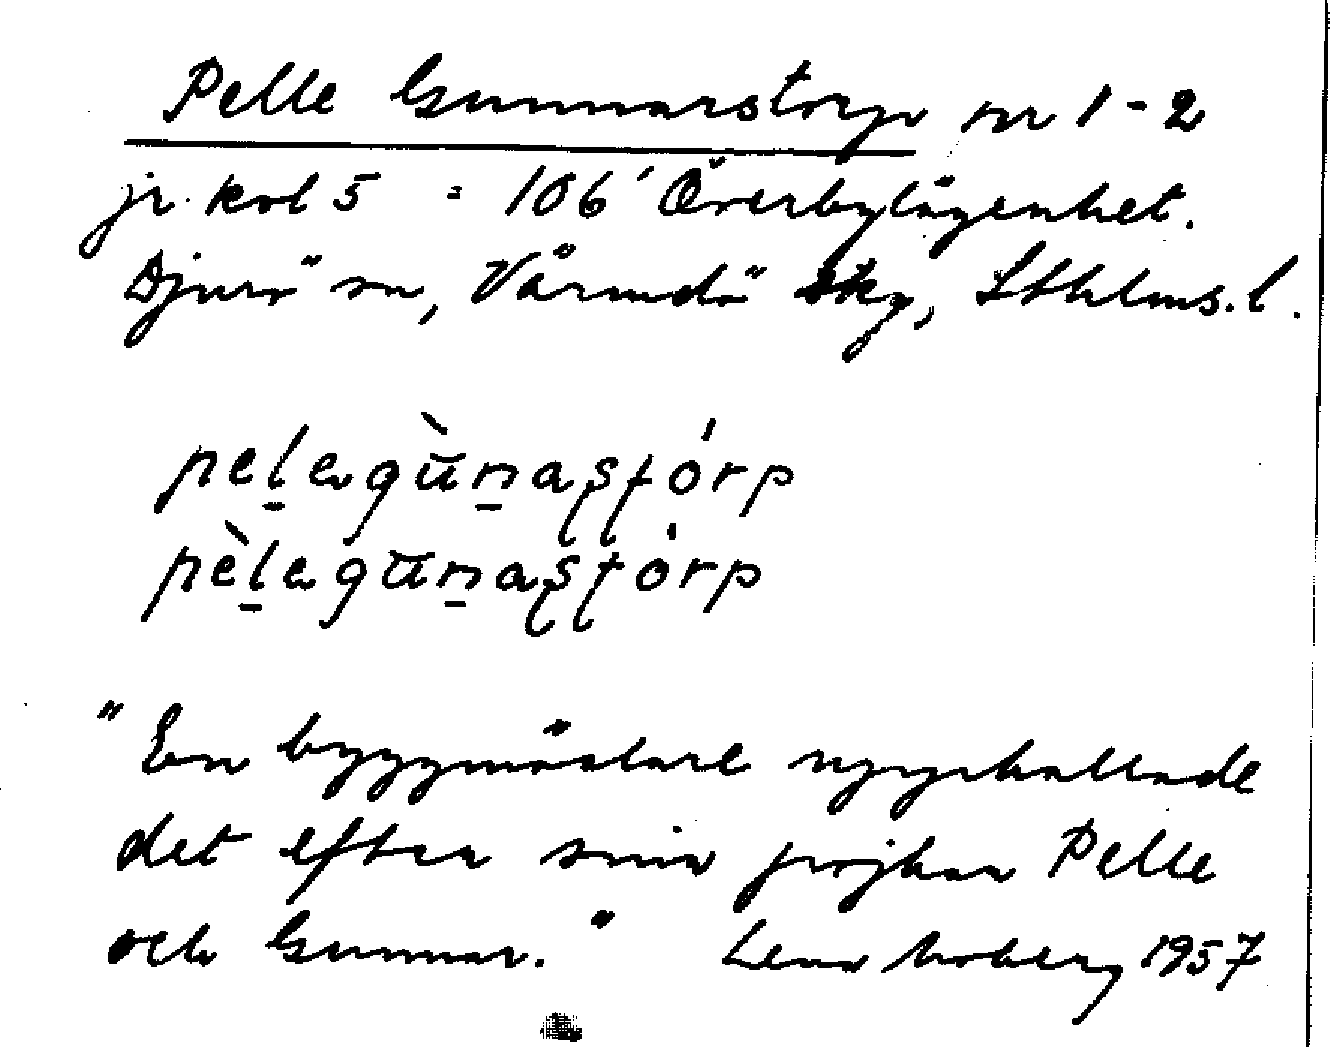 Pelle Gunnarstorp nr 1-2
jr. kol 5 = 106' Överbylägenhet.
Djurö sn, Värmdö skg, Sthlms. l.
pel̠egùn̠aşţórp
pèl̠egūn̠aşţórp
"En byggmästare uppkallade
det efter sina pojkar Pelle
och Gunnar." Lena Moberg 1957